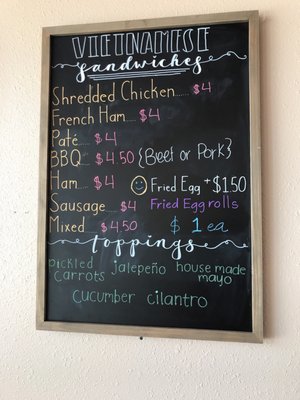 VIETNAMESE
sandwiches
Shredded Chicken...... $4
French Ham..... $4
Paté..... $4
BBQ..... $4.50 {Beef or Pork}
Ham..... $4 Fried Egg +$1.50
Sausage..... $4 Fried Eggrolls
Mixed..... $4.50 $1 ea
toppings
pickled carrots jalepeño house made mayo
cucumber cilantro